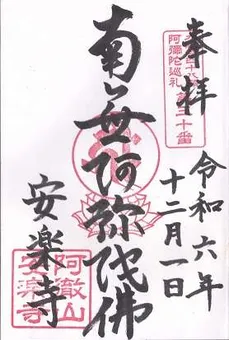 奉拝
阿彌陀巡礼
令和六年
十二月一日
南無阿弥陀佛
安楽寺
阿徹山
安楽寺